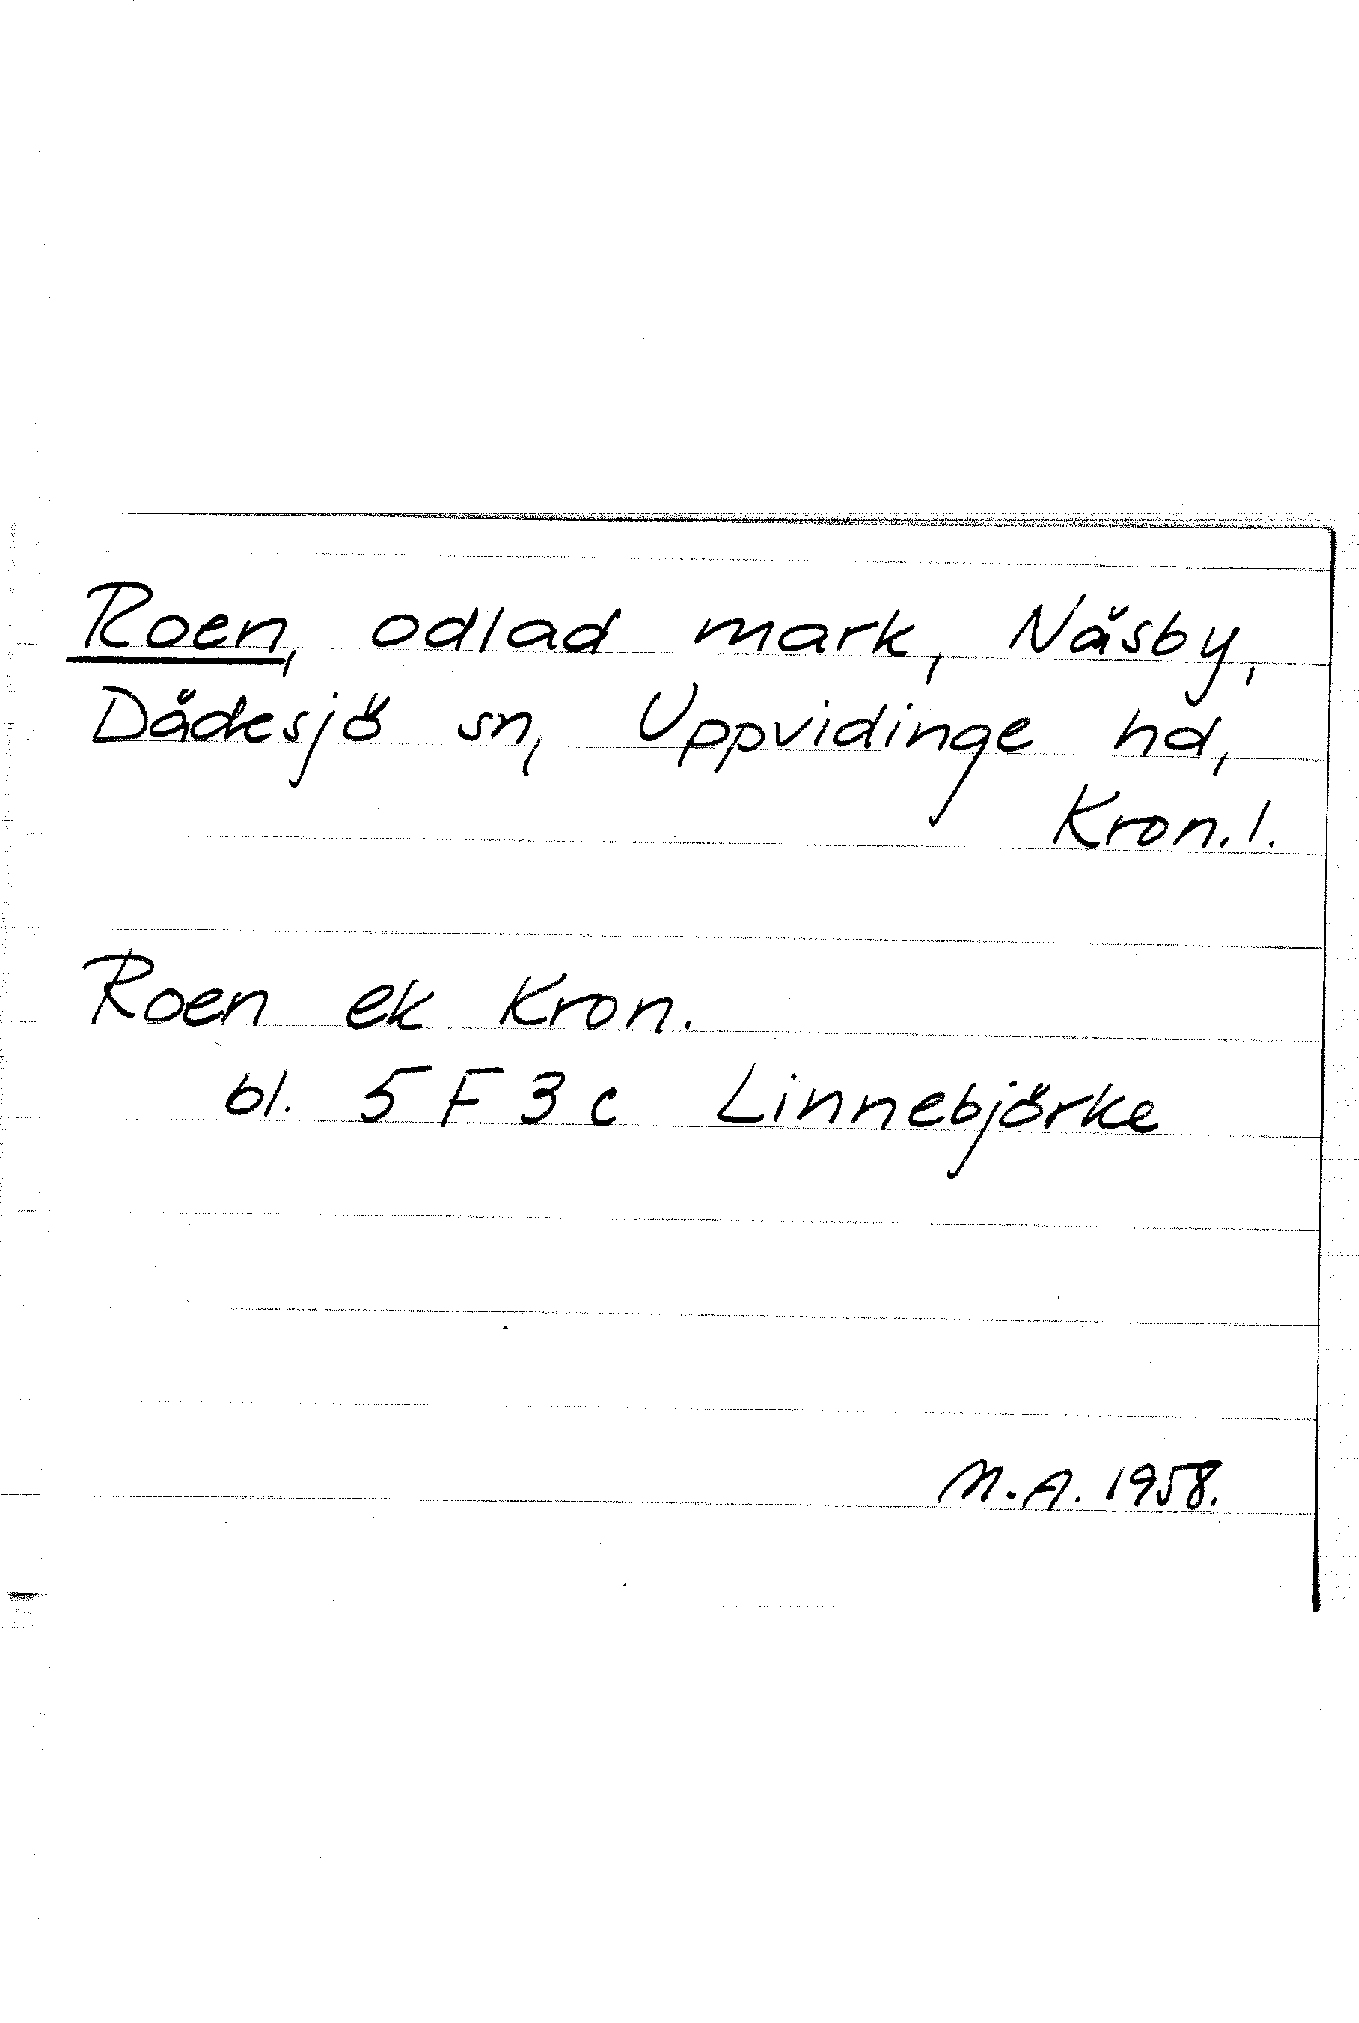 Roen, odlad mark, Näsby,
Dädesjö sn, Uppvidinge hd,
Kron. l.
Roen ek Kron.
bl. 5 F 3 c Linnebjörke
M.A. 1958.